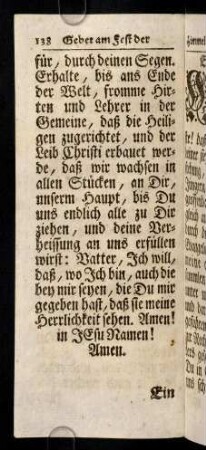 138 Gebet am Fest der
für, durch deinen Segen.
Erhalte, bis ans Ende
der Welt, fromme Hir-
ten und Lehrer in der
Gemeine, daß die Heili-
gen zugerichtet, und der
Leib Christi erbauet wer-
de, daß wir wachsen in
allen Stücken, an Dir,
unserm Haupt, bis Du
uns endlich alle zu Dir
ziehen, und deine Ver-
heissung an uns erfüllen
wirst: Vatter, Ich will,
daß, wo Ich bin, auch die
bey mir seyen, die Du mir
gegeben hast, daß sie meine
Herrlichkeit sehen. Amen!
in JEsu Namen!
Amen.
Ein